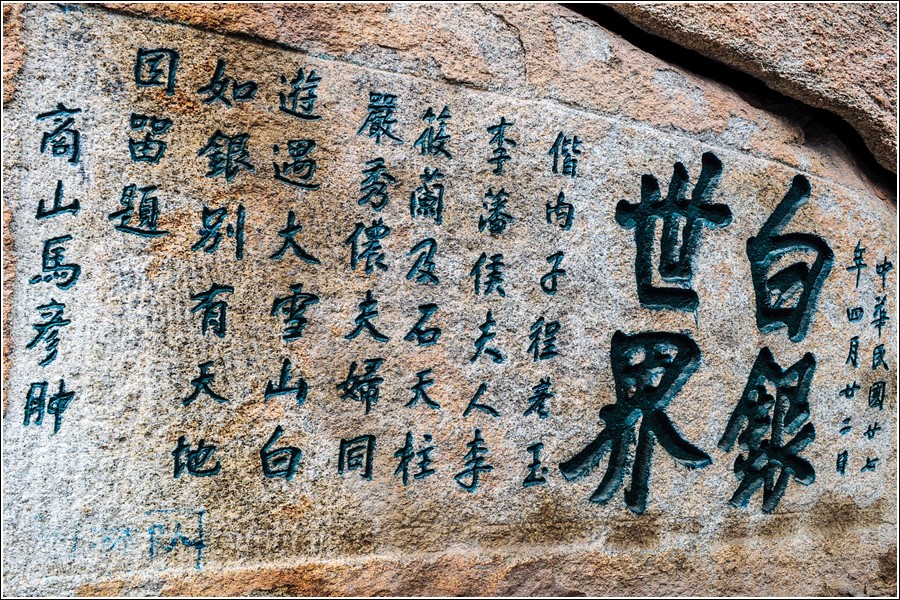 中華民國廿七
年四月廿二日
白銀
世界
偕內子程玉
李藩侯夫人李
筱蘭及石天柱
嚴秀儂夫婦同
遊遇大雪山白
如銀別有天地
因留題
商山馬彥翀